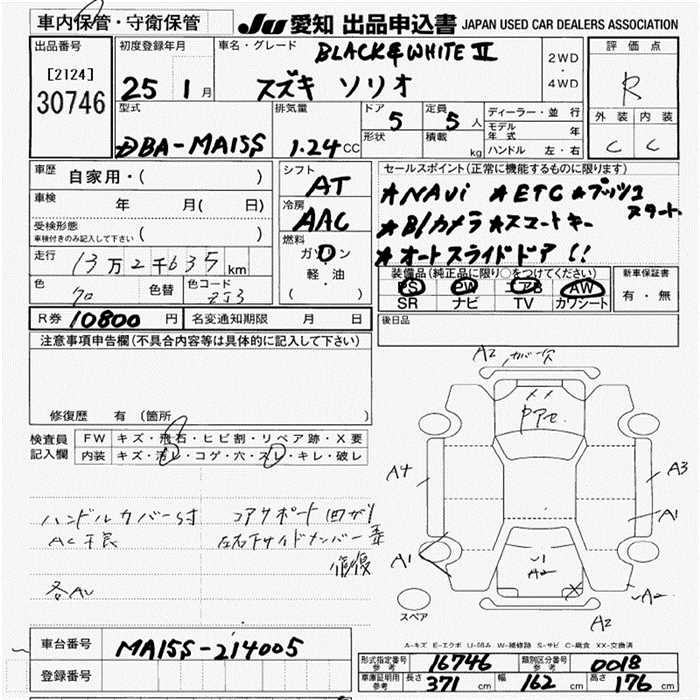 車内保管・守衛保管
JU 愛知 出品申込書 JAPAN USED CAR DEALERS ASSOCIATION
出品番号
[2124]
30746
初度登録年月
25 1月
車名・グレード
BLACK & WHITE II
スズキ ソリオ
2WD
・
4WD
評価点
R
外装 内装
C C
型式
DBA-MA15S
排気量
1.24CC
ドア
5
定員
5人
形状
積載
kg
ディーラー・並行
モデル年式 年
ハンドル 左・右
車歴
自家用・( )
車検
年 月( 日)
受検形態
車検付きのみ記入して下さい ( )
走行
13万2千635km
色
クロ
色替
色コード
ZJ3
シフト
AT
冷房
AAC
燃料
ガソリン
軽・油
( )
セールスポイント(正常に機能するものに限ります)
★NAVi ★ETC ★プッシュ
スタート
★B/カメラ ★スマートキー
★オートスライドドア!!
装備品(純正品に限り○をつけてください)
PS PW エアB AW
SR ナビ TV カワシート
新車保証書
有・無
R券 10800円
名変通知期限 月 日
後日品
注意事項申告欄(不具合内容等は具体的に記入して下さい)
修復歴 有(箇所 )
検査員
記入欄
FW キズ・飛石・ヒビ割・リペア跡・X要
内装 キズ・汚レ・コゲ・穴・スレ・キレ・破レ
ハンドルカバー付
AC不良
各AU
コアサポート凹 曲がり
左右下サイドメンバー
修復
A2 ガバ欠
A4
A3
A1
A1
A2
A2
A2
スペア
A-キズ E-エクボ U-凹み W-補修跡 S-サビ C-腐食 XX-交換済
車台番号
MA15S-214005
登録番号
形式指定番号 参考 16746
類別区分番号 参考 0018
車庫証明用 参考 長さ 371cm 幅 162cm 高さ 176cm